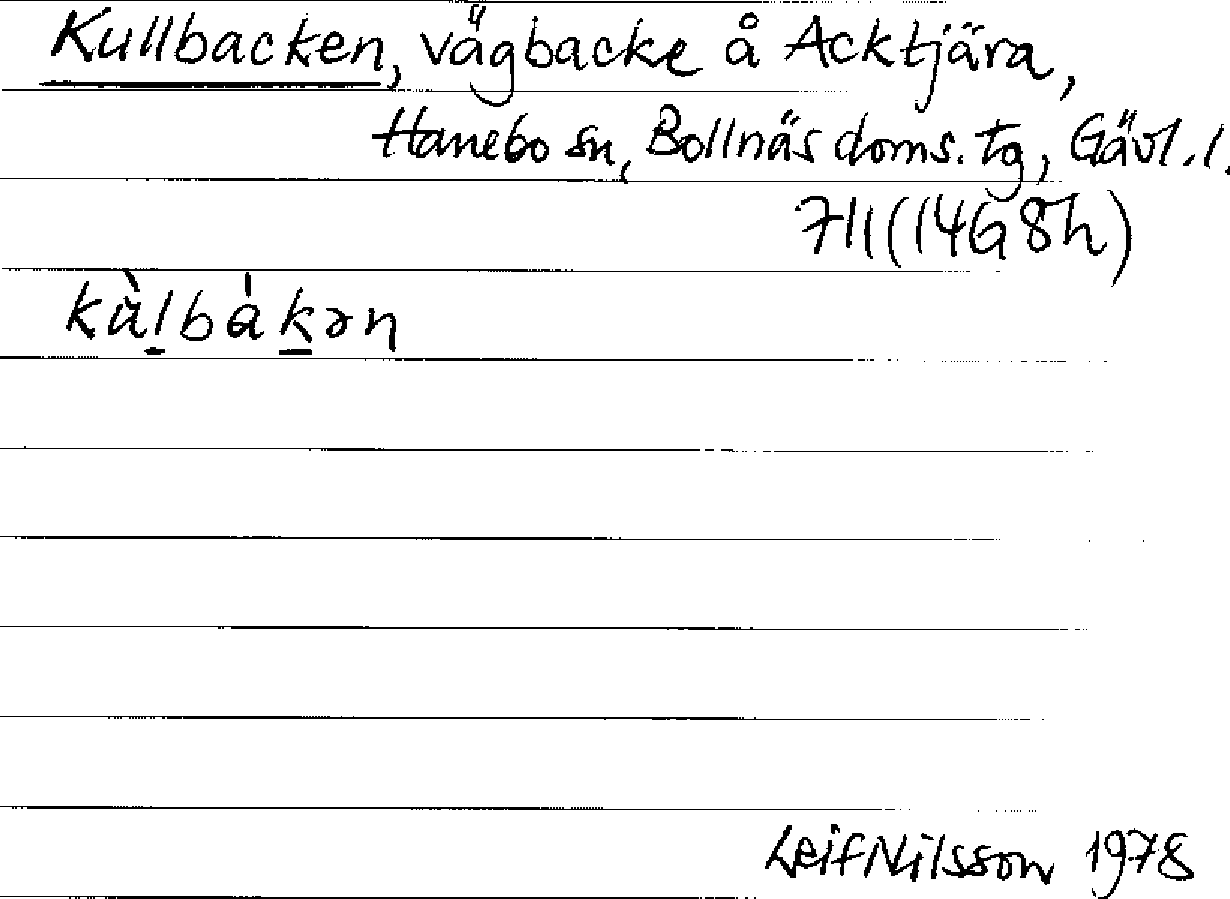 Kullbacken, vägbacke å Acktjära,
Hanebo sn, Bollnäs doms. tg, Gävl. l.
711 (14G 8h)
kằl̠bákən
Leif Nilsson 1978